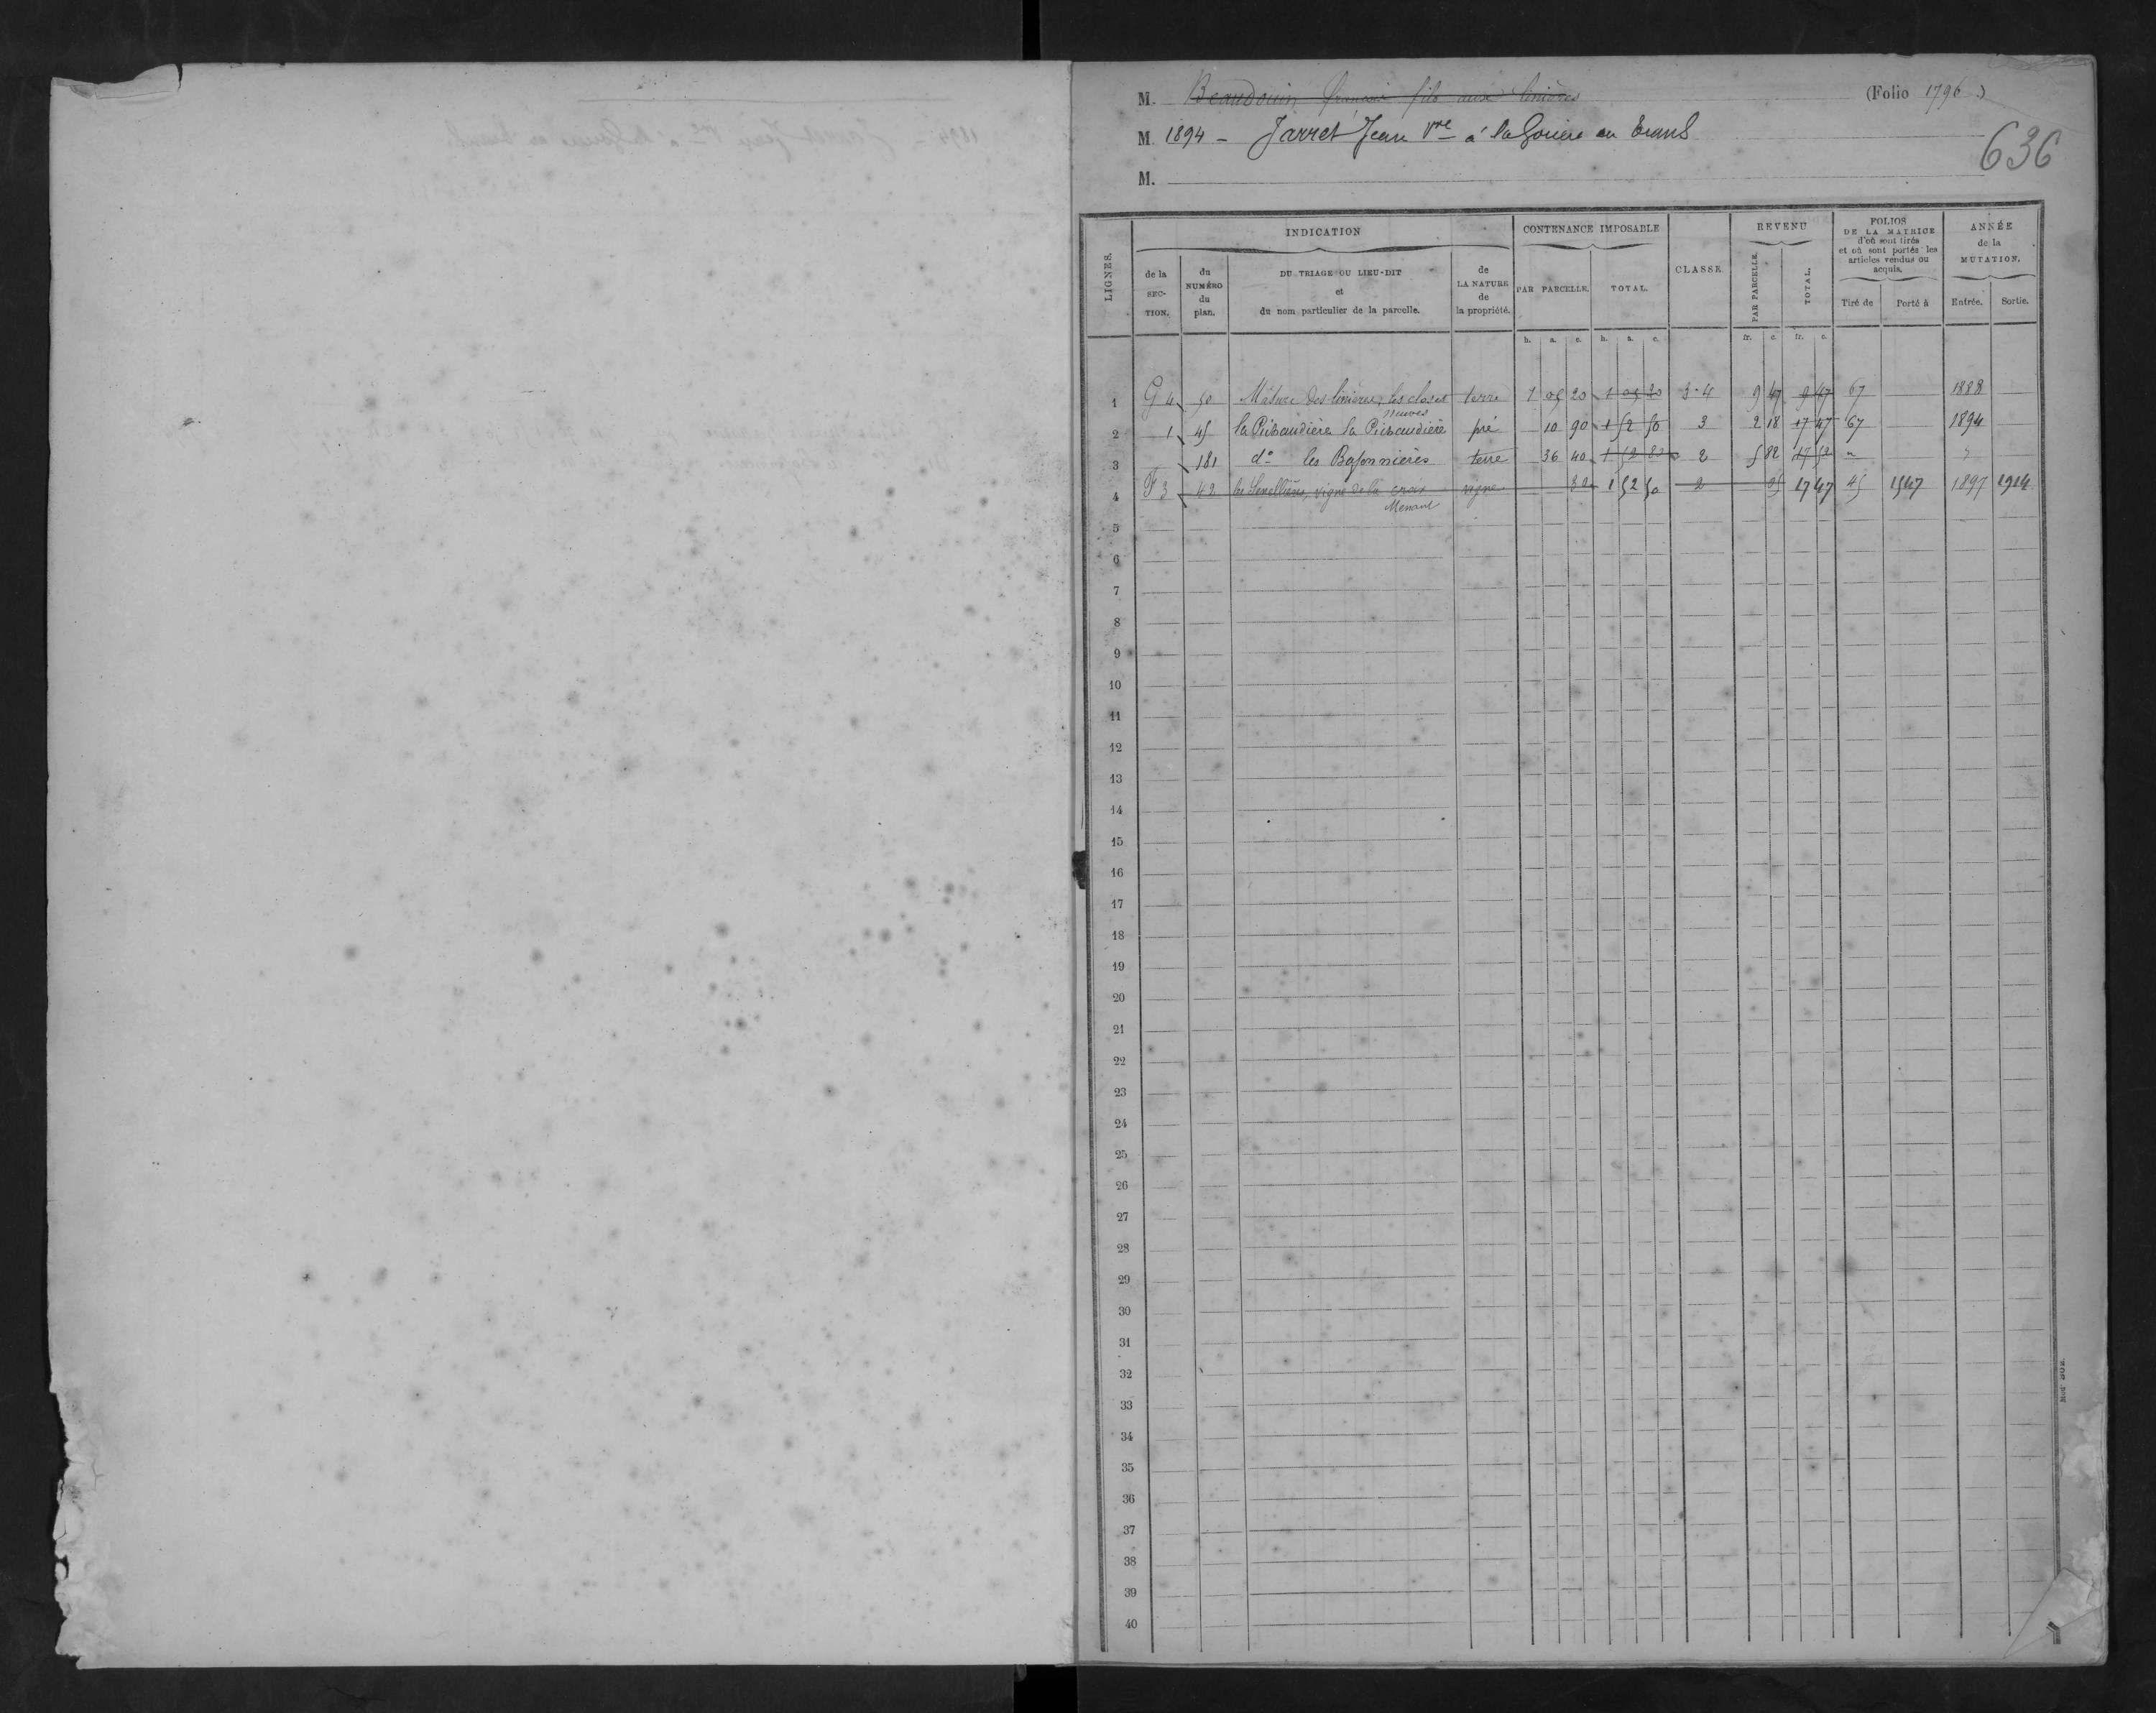 M. Beaudouin françois fils aux linières (Folio 1796)
M. 1894 - Jarret Jean Vve à la en
636
M.
LIGNES.
INDICATION
CONTENANCE IMPOSABLE
CLASSE
REVENU
FOLIOS
DE LA MATRICE
d'où sont tirés
et où sont portés les
articles vendus ou
acquis.
ANNÉE
de la
MUTATION.
de la
SEC-
TION.
du
NUMÉRO
du
plan.
DU TRIAGE OU LIEU-DIT
et
du nom particulier de la parcelle.
de
LA NATURE
de
la propriété.
PAR PARCELLE.
TOTAL.
PAR PARCELLE.
TOTAL.
Tiré de
Porté à
Entrée.
Sortie.
h. a. c. h. a. c. fr. c. fr. c.
1 G 4 50 des linières, les closes terre 1 05 20 1 05 20 3-4 9 47 9 47 67 1888
neuves
2 1 45 pré 10 90 1 52 50 3 2 18 17 47 67 1894
3 181 do les terre 36 40 1 52 82 2 5 82 17 52 "
4 F 3 42 les vigne de la croix vigne 32 1 52 50 2 05 17 47 45 1547 1897 1914
Menant
5
6
7
8
9
10
11
12
13
14
15
16
17
18
19
20
21
22
23
24
25
26
27
28
29
30
31
32
33
34
35
36
37
38
39
40